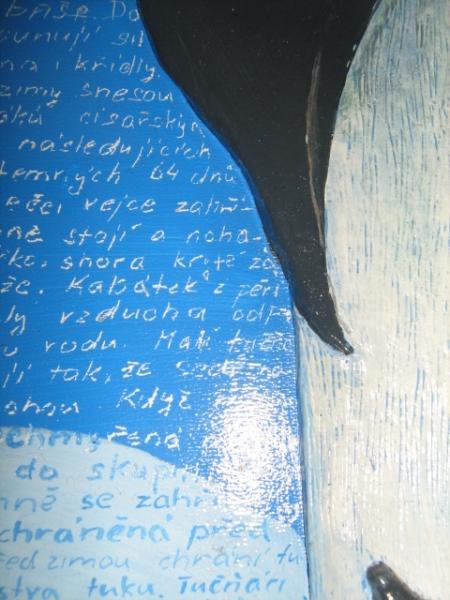 břiše. Do
unují si
na i křídly
zimy snesou
aků císařským
následujících
temných 64 dnů
ečeř vejce zahří-
ně stojí a noha-
shora krytě za
že. Kabátek z peří
lý vzduoha odp
u vodu. Mají
jí tak, že
ohou Když
ochmýřená
do skupi
ně se zahří
chráněná před
řed zimou chrání tu
stva tuku. Tučňáci